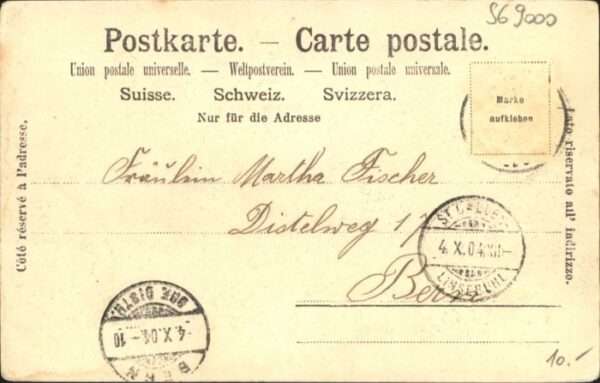 S6 9000
Postkarte. — Carte postale.
Union postale universelle. — Weltpostverein. — Union postale universale.
Suisse. Schweiz. Svizzera.
Nur für die Adresse
Marke
aufkleben
Côté réservé à l'adresse.
Lato riservato all' indirizzo.
Fräulein Martha Fischer
Distelweg
Bern
4.X.04.XII-
LINSEBÜHL
4.X.04.-10
BERN
10.-